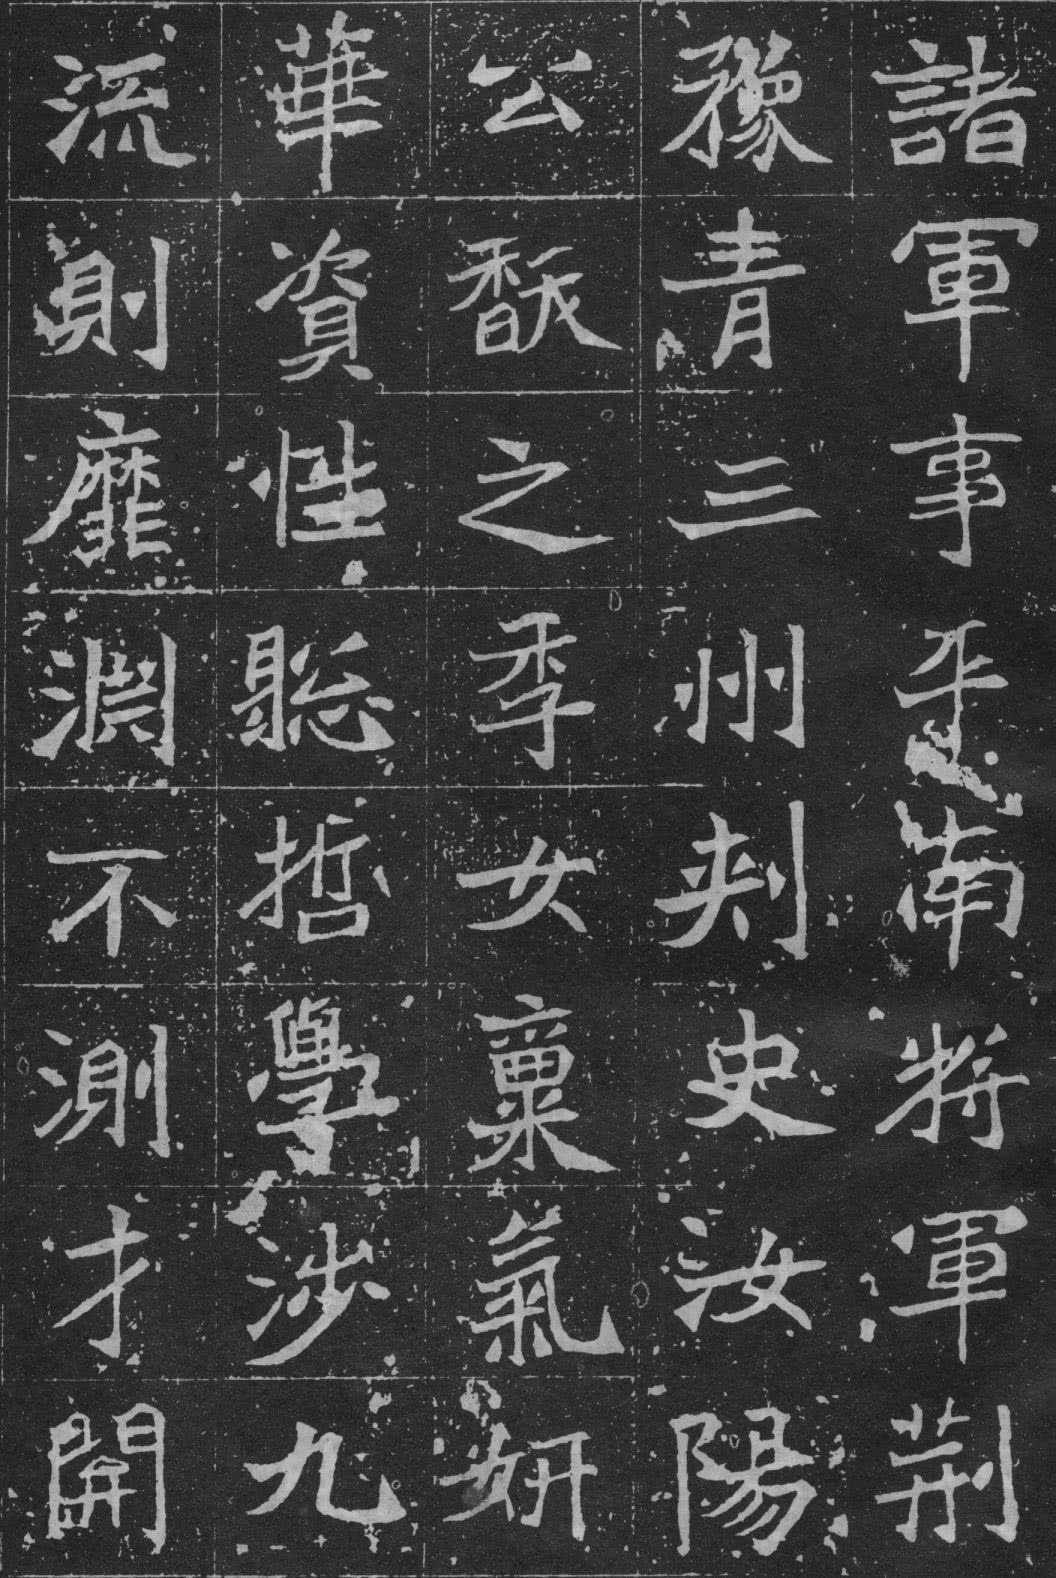 諸軍事平南將軍荊
豫青三州刾史汝陽
公䫤之季女稟氣妍
華資性聡哲學涉九
流則靡淵不測才開